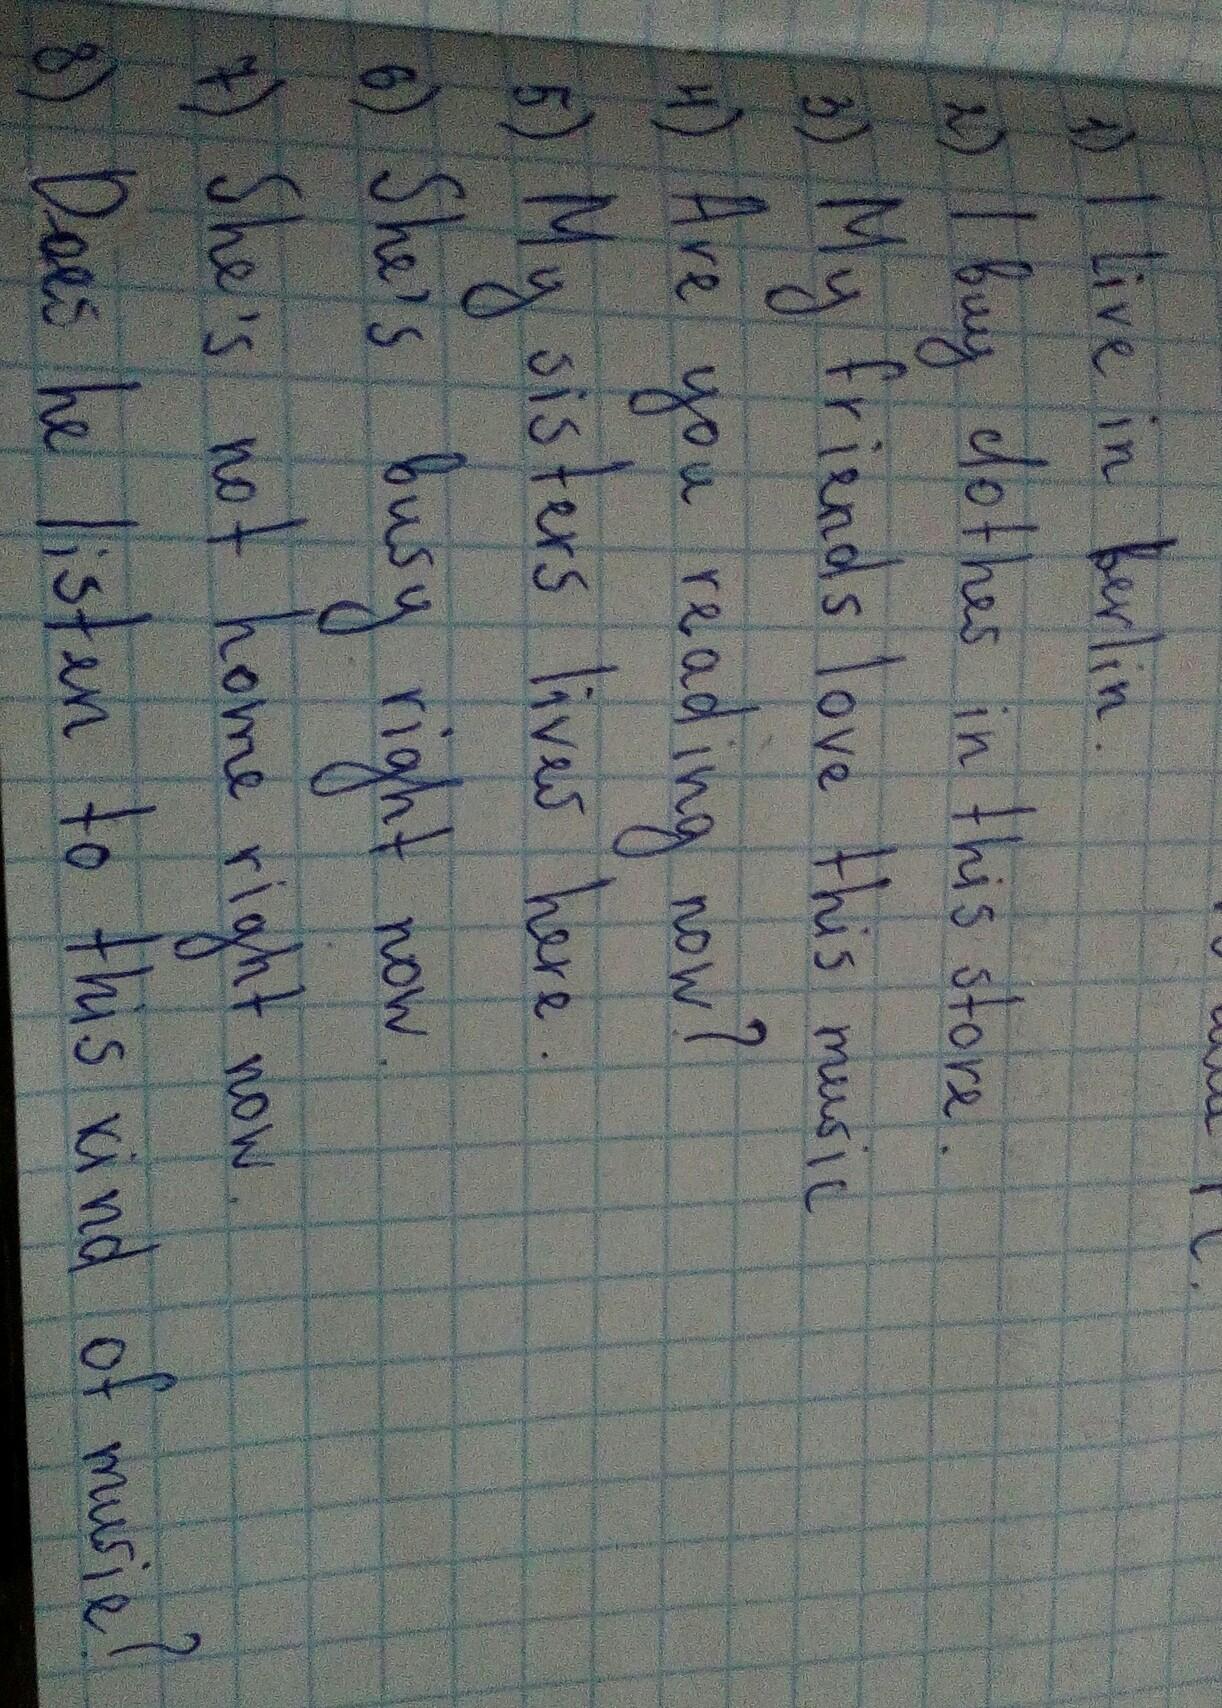 1) I live in berlin.
2) I buy clothes in this store.
3) My friends love this music
4) Are you reading now?
5) My sisters lives here.
6) She's busy right now.
7) She's not home right now.
8) Does he listen to this kind of music?